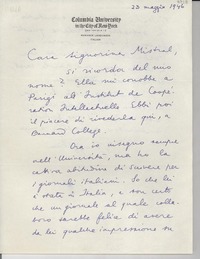 23 maggio 1946
Columbia University
in the City of New York
Cara signorina Mistral,
si ricorda del mio
nome? Ella mi conobbe a
Parigi all'Institut de Coopé-
ration Intellectuelle. Ebbi poi
il piacere di rivederla qui, a
Barnard College.
Ora io insegno sempre
nell'Università, ma ho la
cattiva abitudine di scrivere per
i giornali italiani. So che lei
è stata in Italia, e son certo
che un giornale al quale colla-
boro sarebbe felice di avere
da lei qualche impressione su